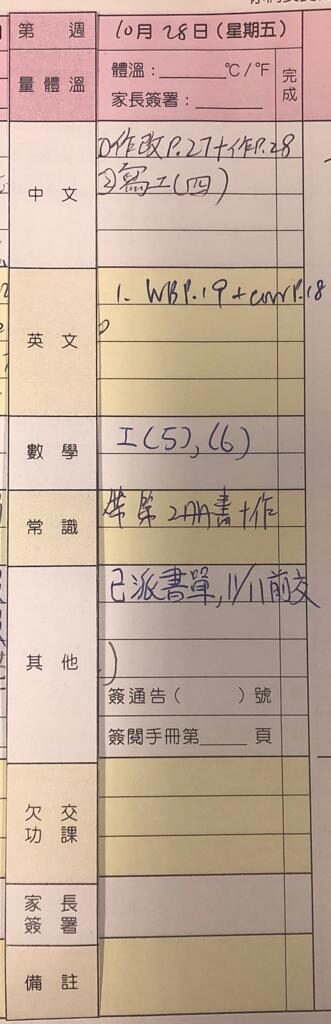 第 週 10月28日(星期五)
量體溫
體溫:______℃/℉
家長簽署:______
完成
中文
①作改P.27+作P.28
②寫工(四)
英文
1. WB P.19 + corr P.18
數學
工(5),(6)
常識
帶第 2AA書+作
其他
已派書單,11/11前交
簽通告( )號
簽閱手冊第____頁
欠交功課
家長簽署
備註